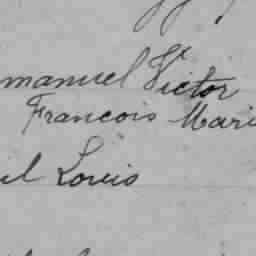 manuel Victor
Francois Mari
el Louis